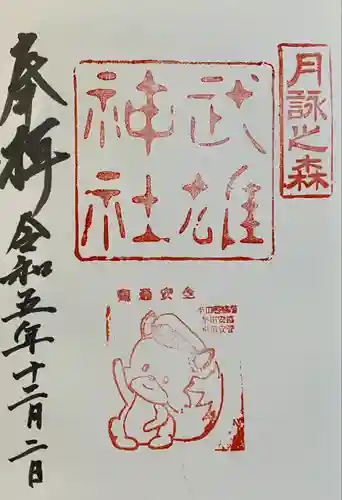 月詠之森
武雄
神社
奉拝
令和五年十二月二日